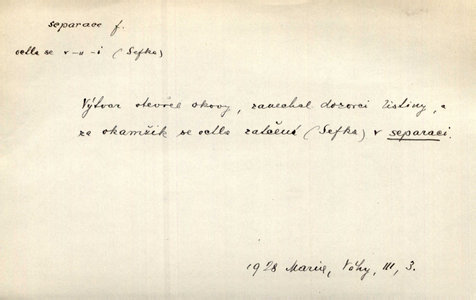 separace f.
octla se v –u –i (Sefka)
Výtvor otevřel okovy, zanechal dozorci listiny, a
za okamžik se octla zatčená (Sefka) v separaci.
1928 Marie, Váhy, III, 3.